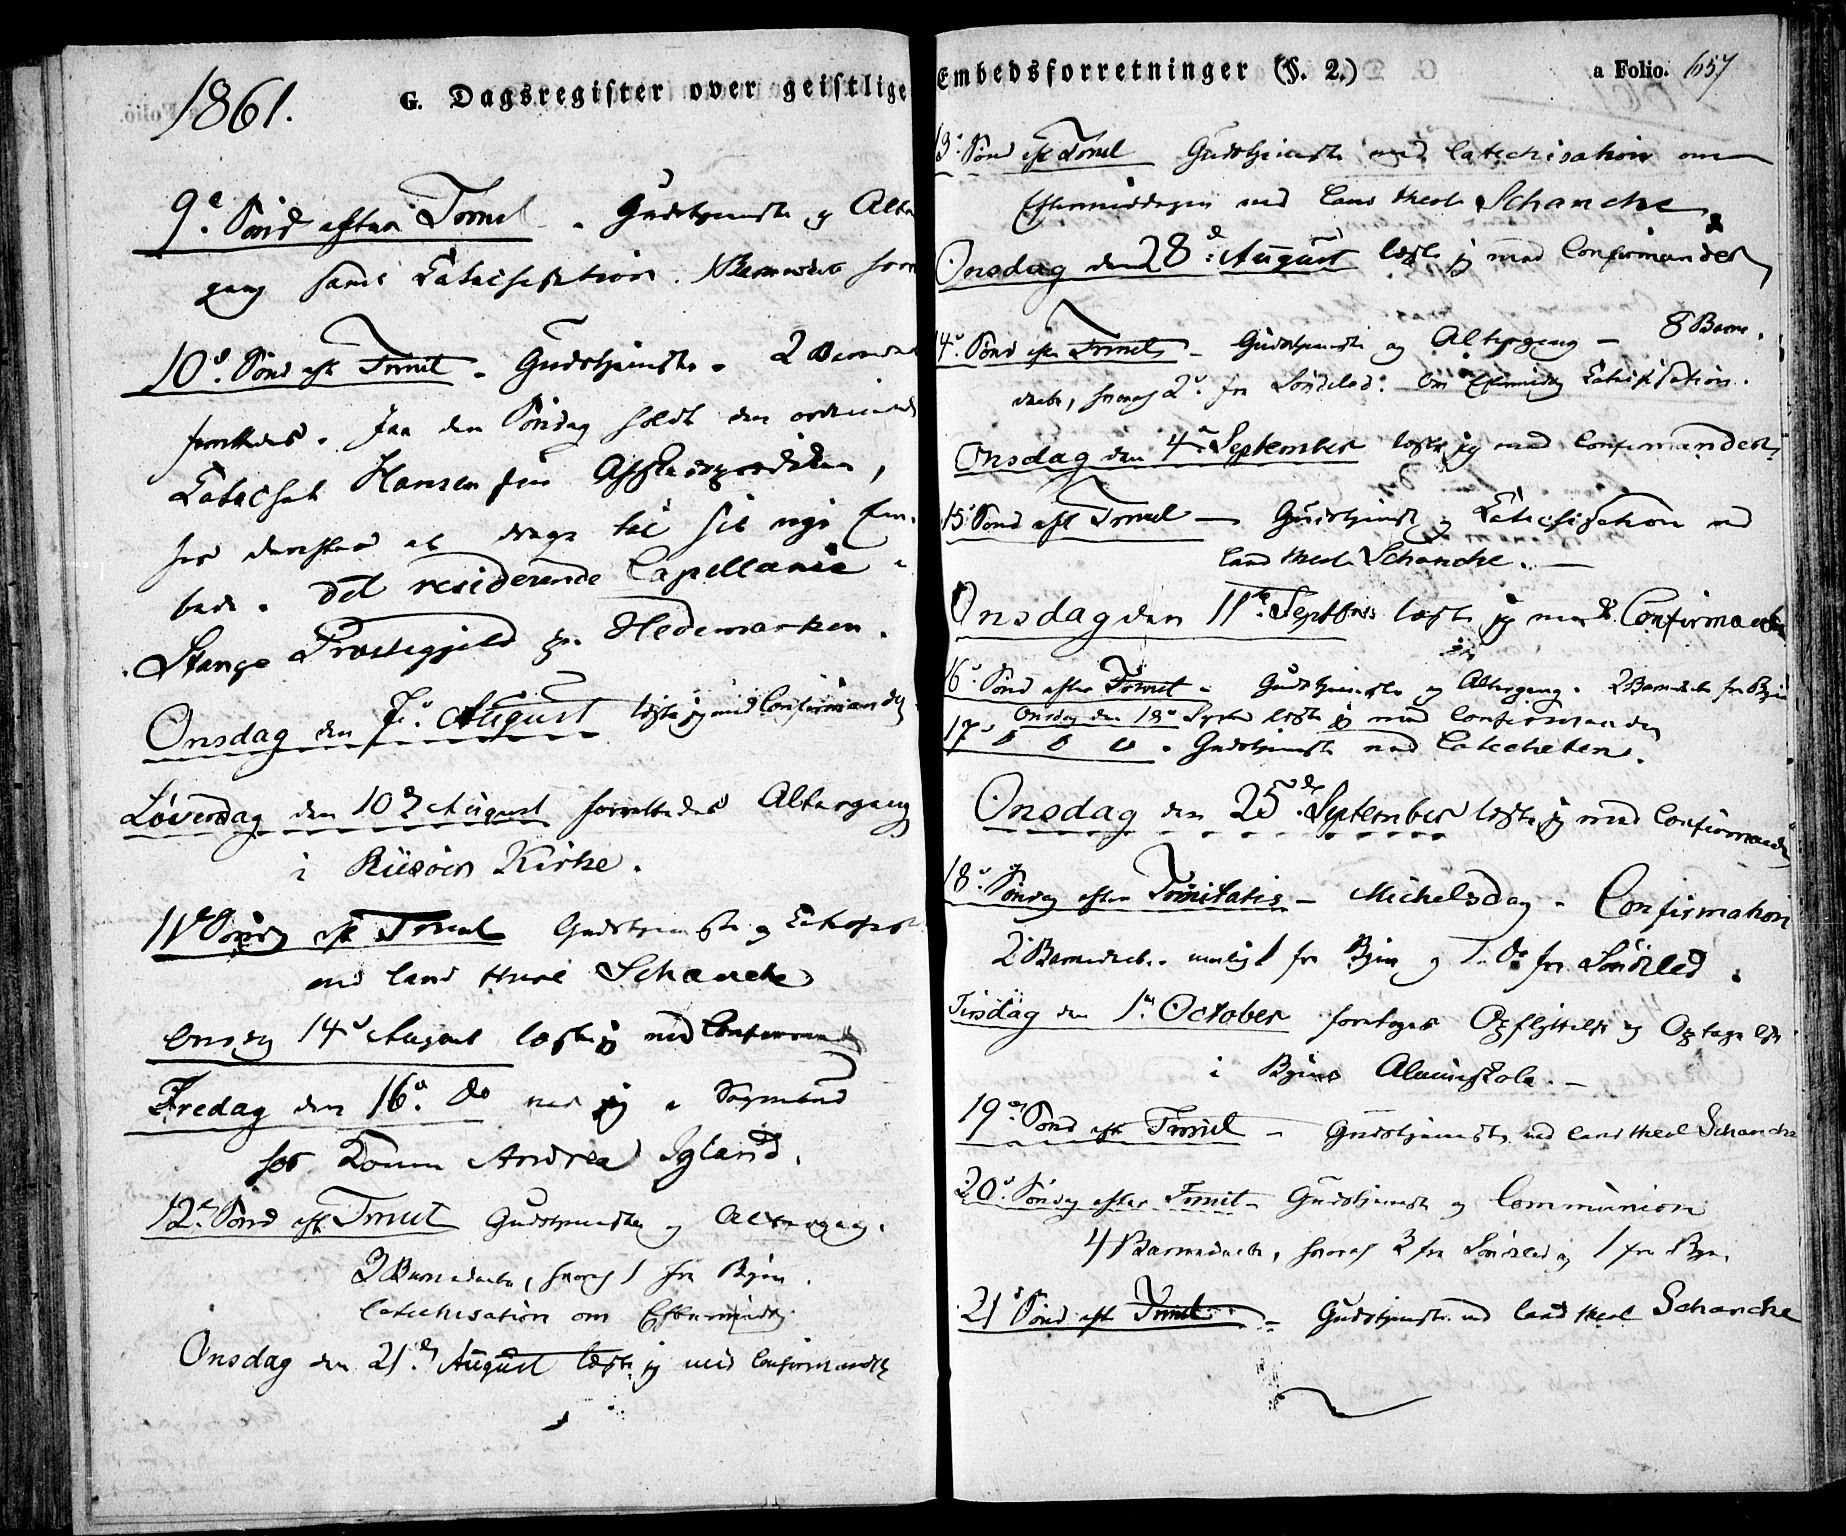 1861.
G. Dagsregister over geistlige
9e Sønd efter Trinit - Gudstjeneste og Alter
gang samt Katechisation. 1 Barnedåb forr
10d. Sønd eft Trinit - Gudstjeneste - 2 Barnedåb
forrettedes. Paa den Søndag holdt den ordinerede
Katechet Hansen sin Afskedsprædiken,
for derefter at drage til sit nye Em-
bede. Det residerende Capellanie
Stange Præstegjeld på Hedemarken.
Onsdag den 7d August læste jeg med Confirmander
Løverdag den 10d August forrettedes Altergang
i Riisøers Kirke.
11d Sønd eft Trinit Gudstjeneste og
ved Cand theol Schancke
Onsdag 14d August læste jeg med Confirmander
Fredag den 16d Do var jeg i Sognebud
hos Konen Andrea Igland.
12te Sønd eft Trinit Gudstjeneste og Altergang.
3 Barnedåb, hvoraf 1 fra Byen.
Catechisation om Eftermiddag
Onsdag den 21de August læste jeg med Confirmander
Embedsforretninger (§. 2.)
a Folio. 657
13d Sønd eft Trinit Gudstjeneste med Catechisation om
Eftermiddagen ved Cand theol Schancke
Onsdag den 28d August læste jeg med Confirmander
14d Sønd efter Trinit - Gudstjeneste og Altergang - 8 Barne
daabe, hvoraf 2 fra Søndeled. Om Eftermidg Katechisation.
Onsdag den 4d September læste jeg med Confirmander
15d Sønd eft Trinit - Gudstjenst og Katechisation ved
Cand theol Schancke. -
Onsdag den 11te Septbr læste jeg med Confirmander
16d Sønd efter Trinit - Gudstjeneste og Altergang. 2 Barnedåb fra Byen
Onsdag den 18d Septbr læste jeg med Confirmander
17d d d d - Gudstjeneste ved Catecheten.
Onsdag den 25de September læste jeg med Confirmander
18d Søndag efter Trinitatis - Michelsdag - Confirmation
2 Barnedåb nemlig 1 fra Byen og 1 Do fra Søndeled.
Tirsdag den 1ste October foretoges Opflyttelse og Optagelse
i Byens Almueskole. -
19d Sønd eft Trinit - Gudstjeneste ved Cand theol Schancke
20d Søndag efter Trinit - Gudstjeneste og Communion
4 Barnedåb, hvoraf 3 fra Søndeled og 1 fra Byen.
21d Sønd eft Trinit - Gudstjeneste ved Cand theol Schancke